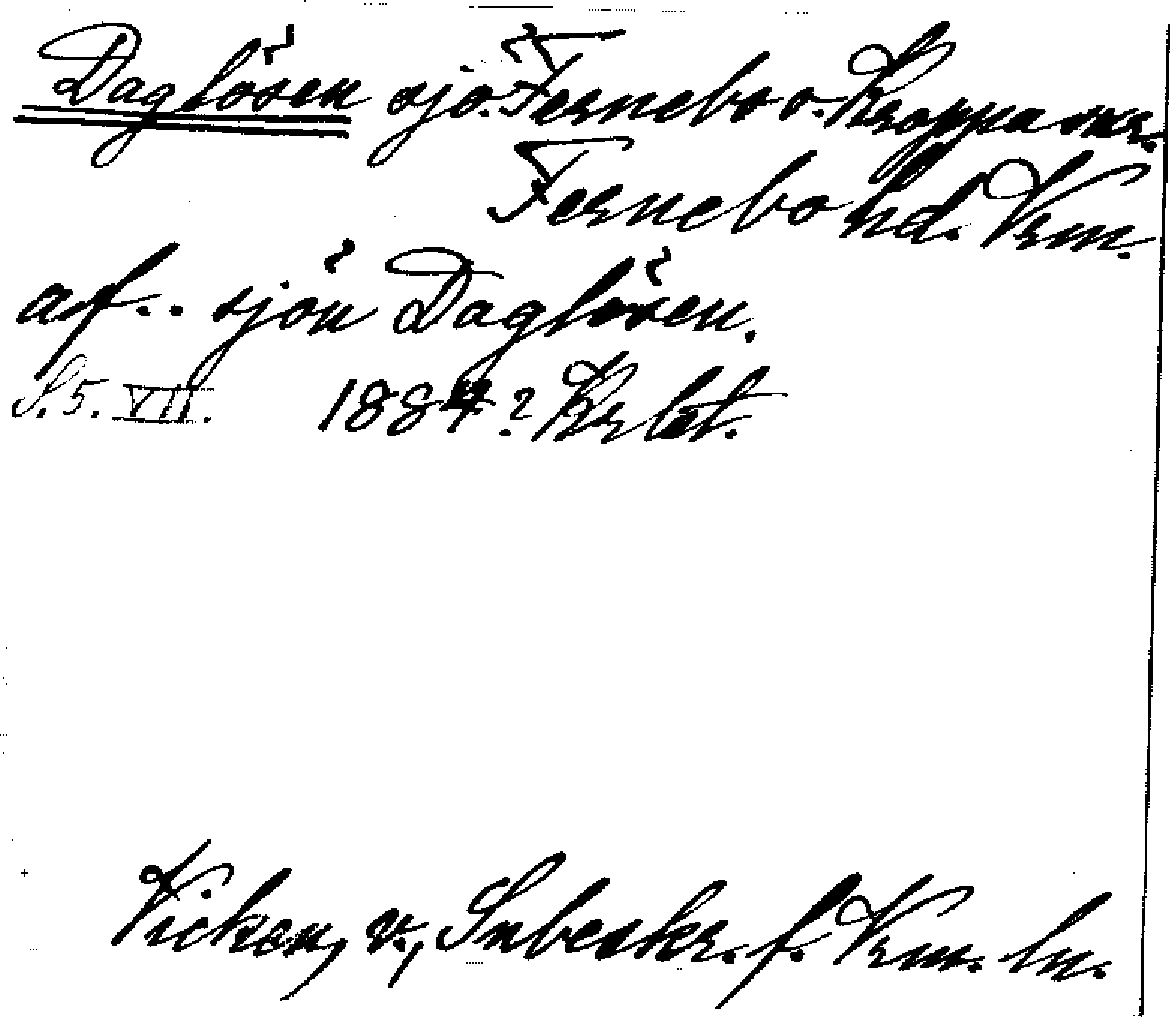 Daglösen sjö. Fernebo o. Kroppa snr.
Fernebo hd. Vrm.
af.. sjön Daglösen.
S. 5. VII. 1884? Krlet.
Vicken, v., Snbeskr. f. Vrm. ln.